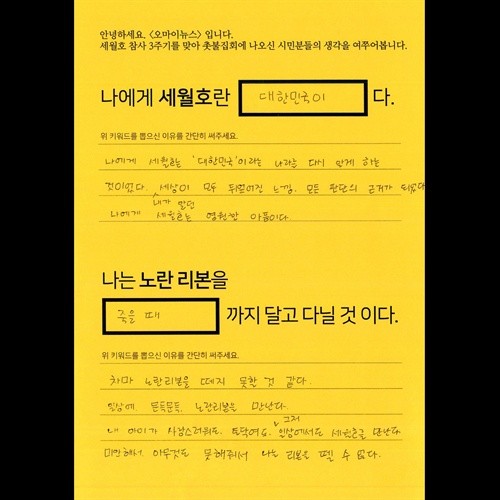 안녕하세요. <오마이뉴스> 입니다.
세월호 참사 3주기를 맞아 촛불집회에 나오신 시민분들의 생각을 여쭈어봅니다.
나에게 세월호란 대한민국이 다.
위 키워드를 뽑으신 이유를 간단히 써주세요.
나에게 세월호는 '대한민국'이라는 나라를 다시 알게 하는
것이었다. 세상이 모두 뒤집어진 느낌. 모든 판단의 근거가 되었다
내가 알던
나에게 세월호는 영원한 아픔이다.
나는 노란 리본을
죽을 때 까지 달고 다닐 것 이다.
위 키워드를 뽑으신 이유를 간단히 써주세요.
차마 노란리본을 떼지 못할 것 같다.
일상에 문득문득, 노란리본을 만난다.
내 아이가 사랑스러워도. 토닥여도. 일상에서도 세월호를 만난다
그저
미안해서. 아무것도 못해줘서 나는 리본을 뗄 수 없다.